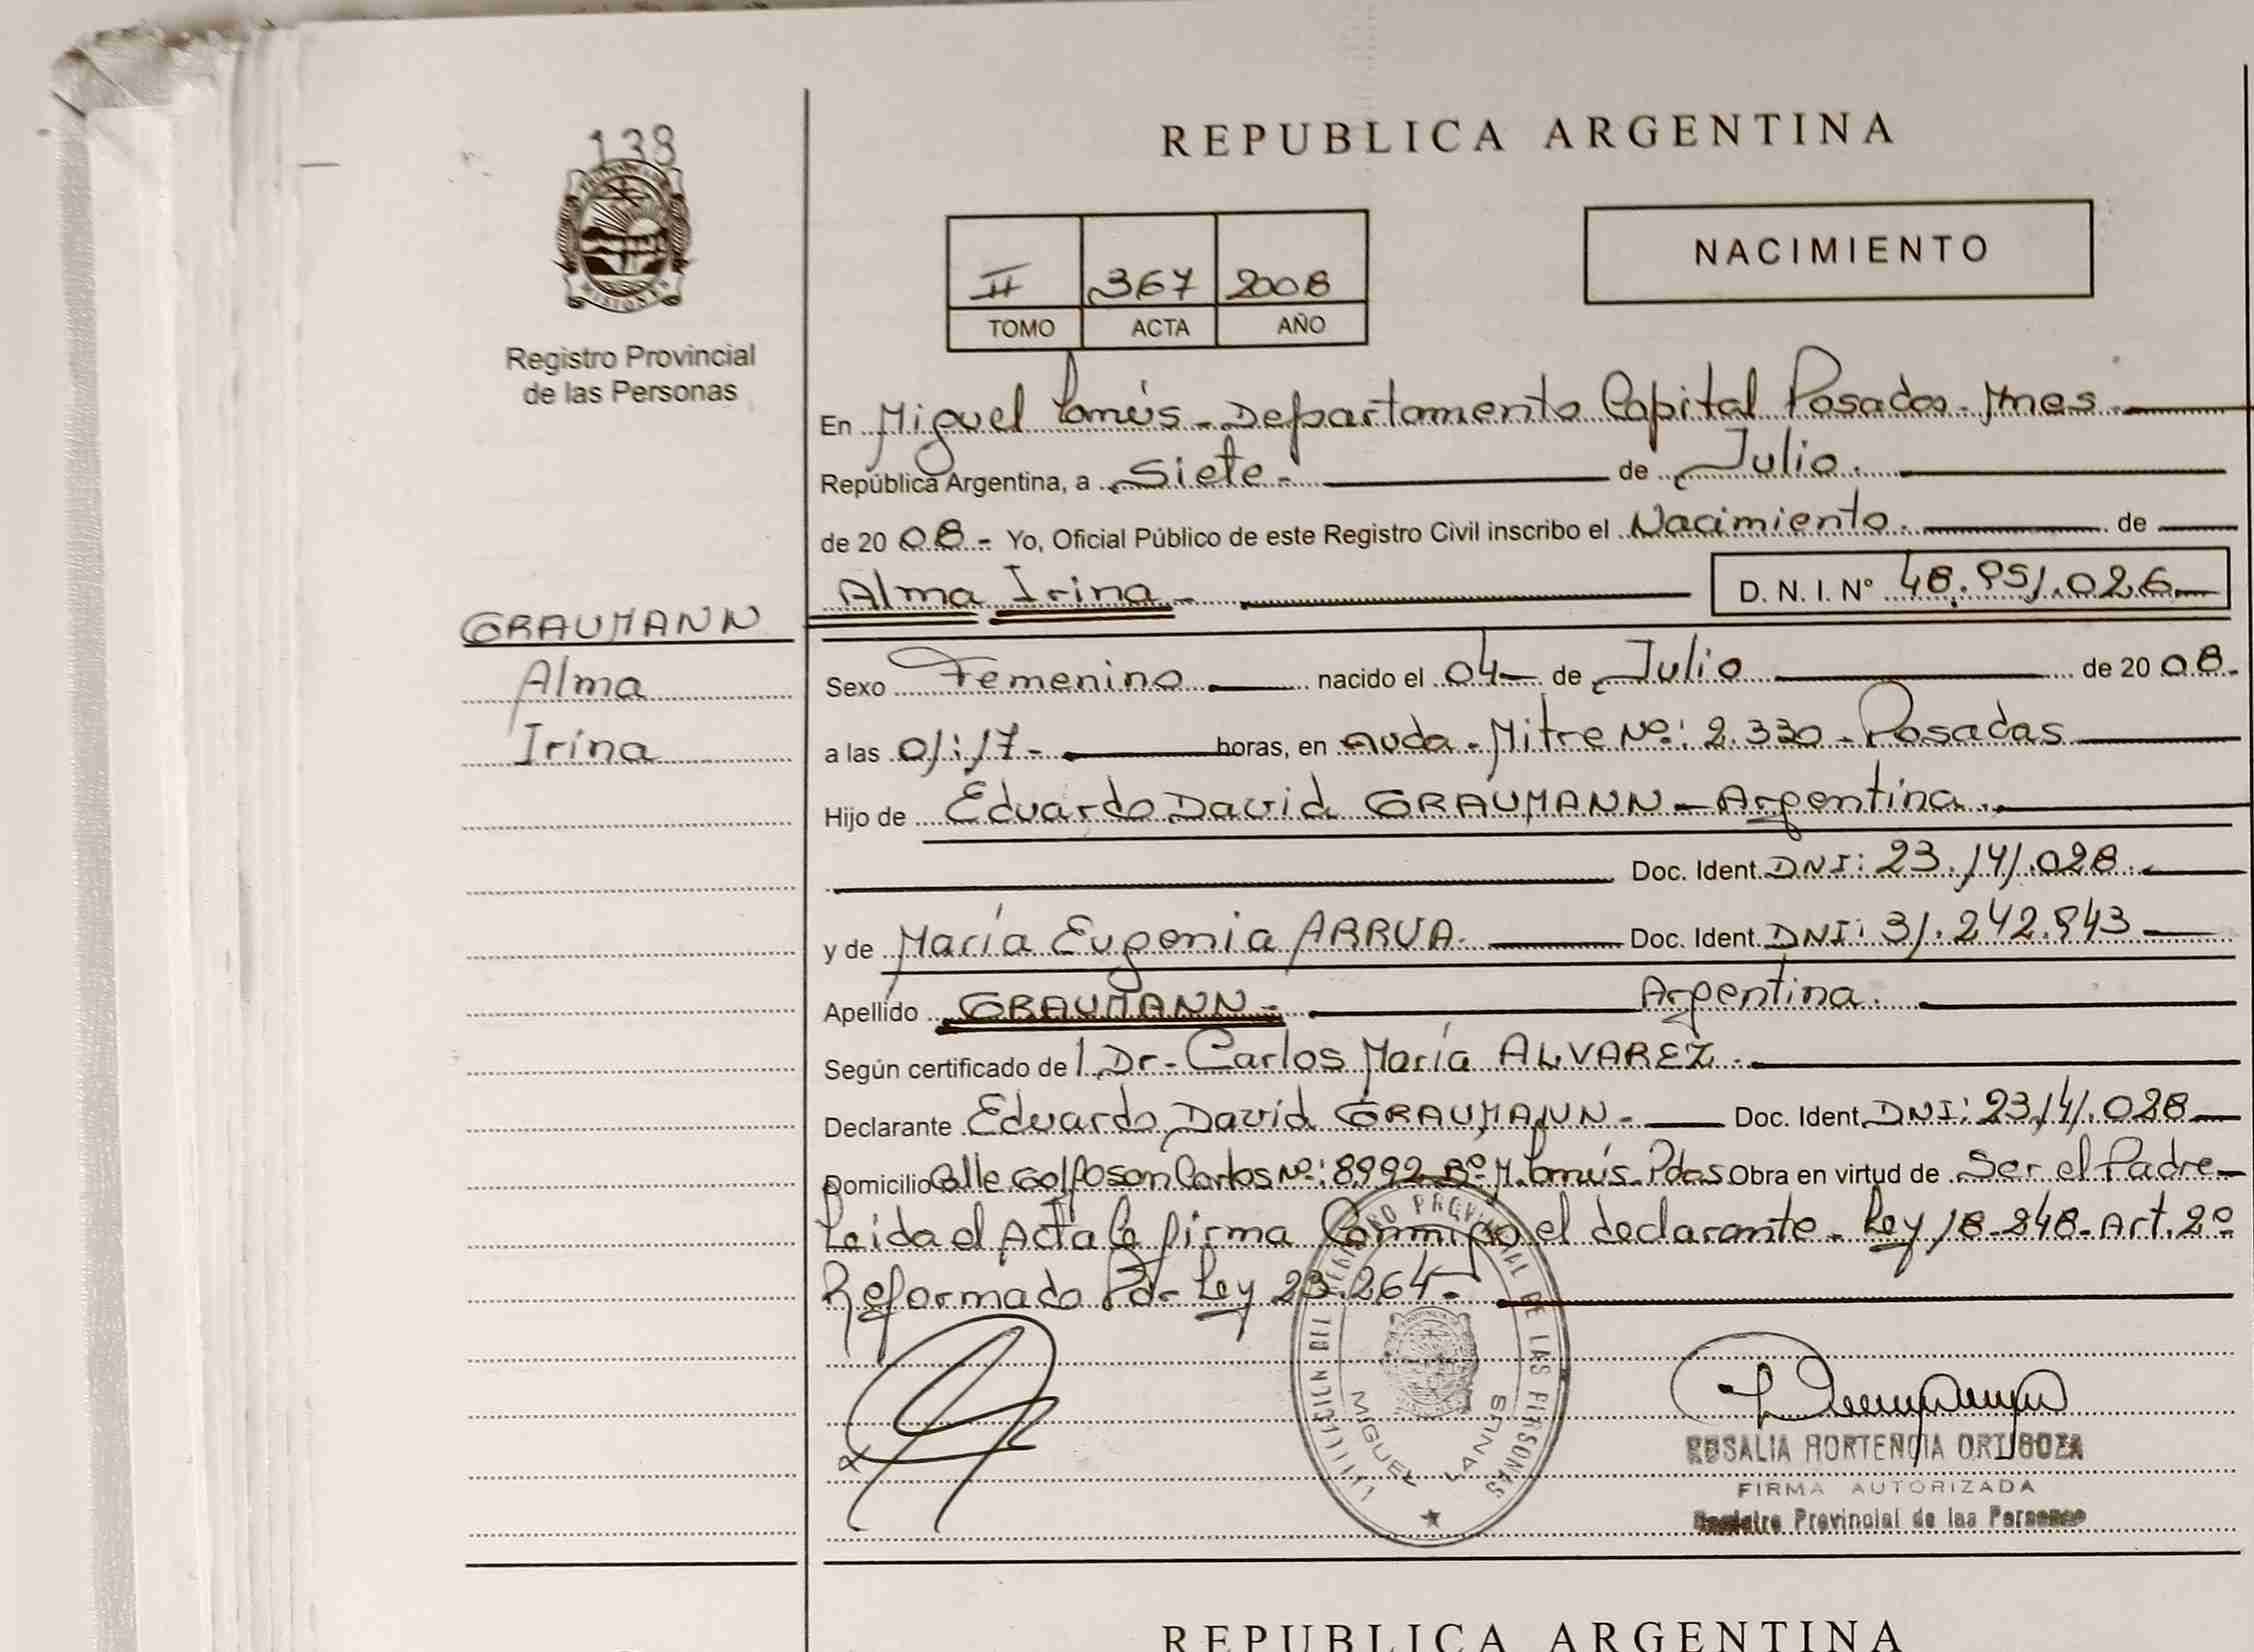 138
REPUBLICA ARGENTINA
II 367 2008
TOMO ACTA AÑO
NACIMIENTO
Registro Provincial
de las Personas
En Miguel Lanús - Departamento Capital Posadas - Mnes -
República Argentina, a Siete - de Julio.
de 20 08 - Yo, Oficial Público de este Registro Civil inscribo el Nacimiento. de
Alma Irina - D. N. I. Nº 48.951.026
GRAUMANN
Alma
Irina
Sexo Femenino nacido el 04 de Julio de 20 08.
a las 01:17 - horas, en Avda. Mitre Nº: 2.330 - Posadas
Hijo de Eduardo David GRAUMANN - Argentina.
Doc. Ident. DNI: 23.141.028.
y de María Eugenia ARRUA. Doc. Ident. DNI: 31.242.943
Apellido GRAUMANN - Argentina.
Según certificado de l Dr. Carlos María ALVAREZ.
Declarante Eduardo David GRAUMANN - Doc. Ident. DNI: 23.141.028
Domicilio Calle Golfo San Carlos Nº: 8992 Bº M. Lanús. Pdas Obra en virtud de Ser el Padre
Leída el Acta la firma Conmigo el declarante - Ley 18-248-Art. 2º
Reformado Por Ley 23.264 -
DEL REGISTRO PROVINCIAL DE LAS PERSONAS
MIGUEL LANUS
ROSALIA HORTENCIA ORTIGOZA
FIRMA AUTORIZADA
Registro Provincial de las Personas
REPUBLICA ARGENTINA